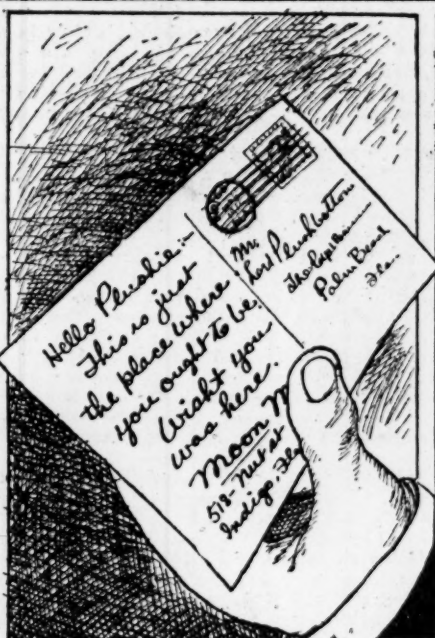 Hello Plushie:-
This is just
the place where
you ought to be.
Wisht you
was here.
Moon M
518- Nut st
Indigo, Fla
Mr.
Lord Plushbottom
The
Palm Beach
Fla.